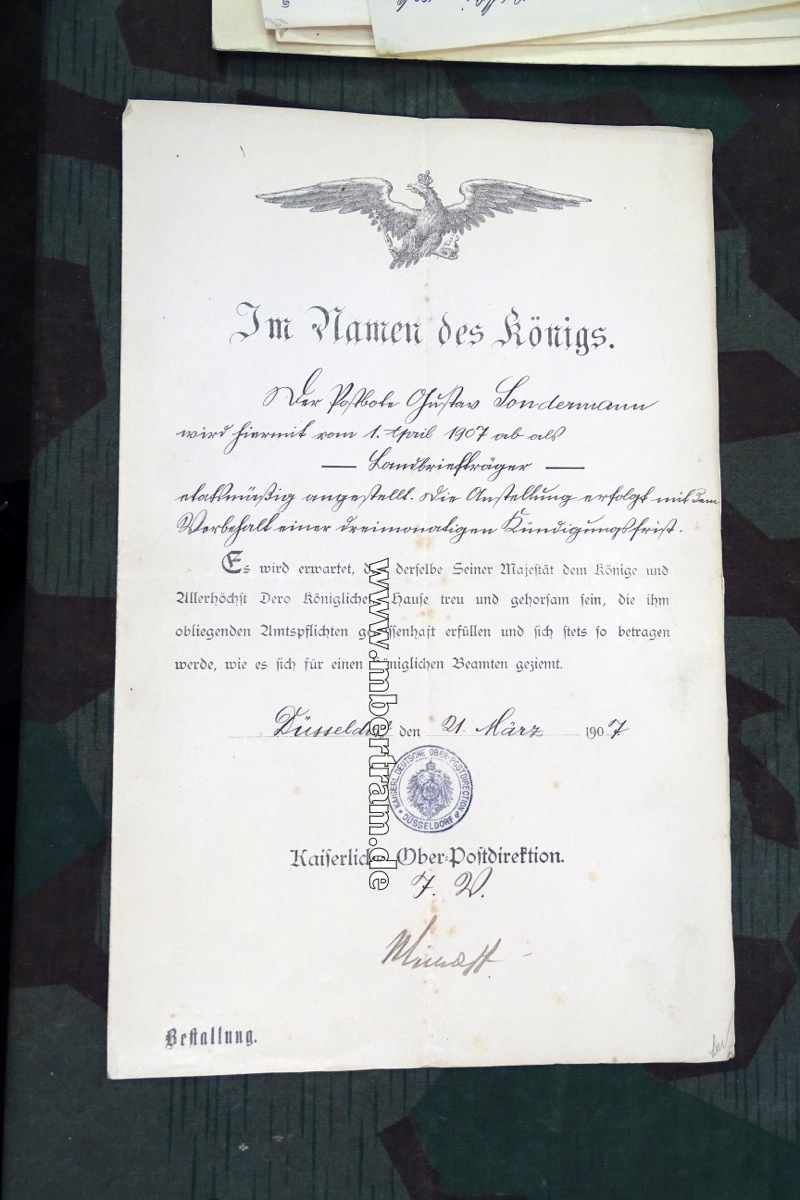 Im Namen des Königs.
Der Postbote Gustav Sondermann
wird hiermit vom 1. April 1907 ab als
— Landbriefträger —
etatsmäßig angestellt. Die Anstellung erfolgt mit dem
Vorbehalt einer dreimonatigen Kündigungsfrist.
Es wird erwartet, daß derselbe Seiner Majestät dem Könige und
Allerhöchst Dero Königlichen Hause treu und gehorsam sein, die ihm
obliegenden Amtspflichten gewissenhaft erfüllen und sich stets so betragen
werde, wie es sich für einen Königlichen Beamten geziemt.
Düsseldorf den 21. März 1907
KAISERL. DEUTSCHE OBER-POSTDIRECTION
* DÜSSELDORF *
Kaiserliche Ober-Postdirektion.
I. V.
Bestallung.
www.mbertram.de